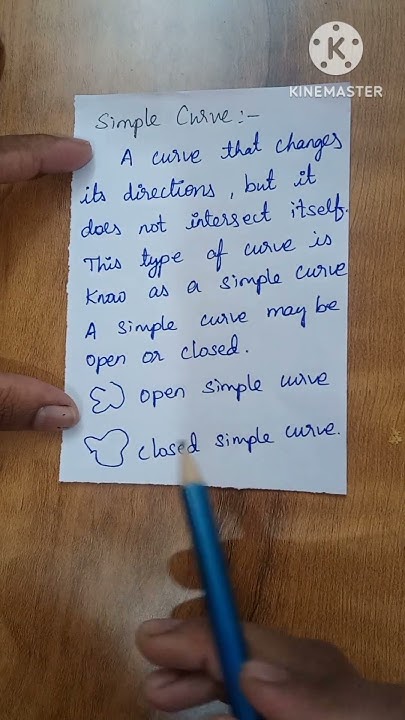 KINEMASTER
Simple Curve:-
A curve that changes
its directions, but it
does not intersect itself.
This type of curve is
Know as a simple curve
A simple curve may be
open or closed.
open simple curve
closed simple curve.